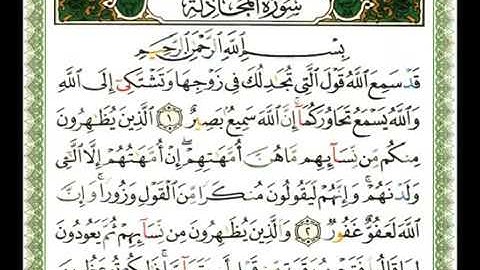 سُورَةُ المُجَادلَة
بِسْمِ ٱللَّهِ ٱلرَّحْمَٰنِ ٱلرَّحِيمِ
قَدْ سَمِعَ ٱللَّهُ قَوْلَ ٱلَّتِى تُجَٰدِلُكَ فِى زَوْجِهَا وَتَشْتَكِىٓ إِلَى ٱللَّهِ
وَٱللَّهُ يَسْمَعُ تَحَاوُرَكُمَآ إِنَّ ٱللَّهَ سَمِيعٌۢ بَصِيرٌ ١ ٱلَّذِينَ يُظَٰهِرُونَ
مِنكُم مِّن نِّسَآئِهِم مَّا هُنَّ أُمَّهَٰتِهِمْ إِنْ أُمَّهَٰتُهُمْ إِلَّا ٱلَّٰٓـِٔى
وَلَدْنَهُمْ وَإِنَّهُمْ لَيَقُولُونَ مُنكَرًا مِّنَ ٱلْقَوْلِ وَزُورًا وَإِنَّ
ٱللَّهَ لَعَفُوٌّ غَفُورٌ ٢ وَٱلَّذِينَ يُظَٰهِرُونَ مِن نِّسَآئِهِمْ ثُمَّ يَعُودُونَ